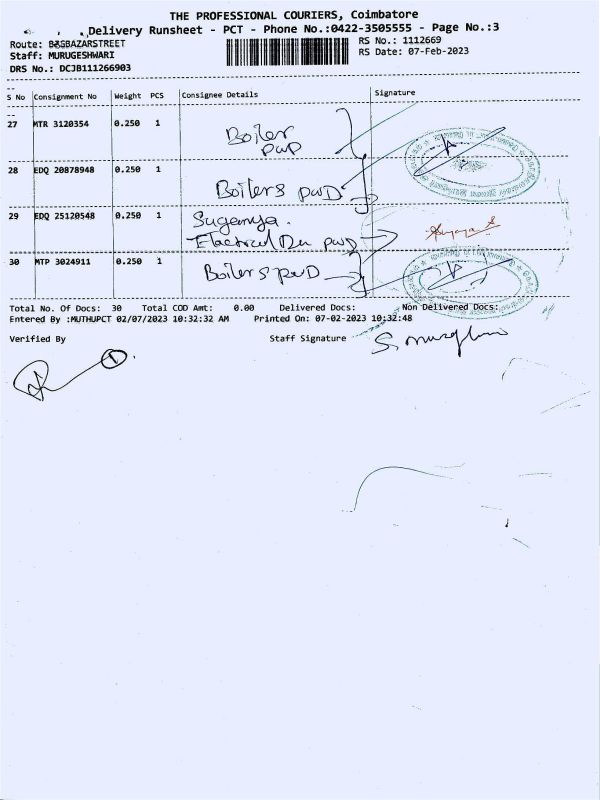 THE PROFESSIONAL COURIERS, Coimbatore
Delivery Runsheet - PCT - Phone No.:0422-3505555 - Page No.:3
Route: B&GBAZARSTREET
RS No.: 1112669
Staff: MURUGESHWARI
RS Date: 07-Feb-2023
DRS No.: DCJB111266903
S No Consignment No Weight PCS Consignee Details Signature
27 MTR 3120354 0.250 1 Boiler
PWD
28 EDQ 20878948 0.250 1
Boilers PWD
29 EDQ 25120548 0.250 1 Suganya.
Electrical PWD
30 MTP 3024911 0.250 1 Boilers PWD
Total No. Of Docs: 30 Total COD Amt: 0.00 Delivered Docs: Non Delivered Docs:
Entered By :MUTHUPCT 02/07/2023 10:32:32 AM Printed On: 07-02-2023 10:32:48
Verified By Staff Signature